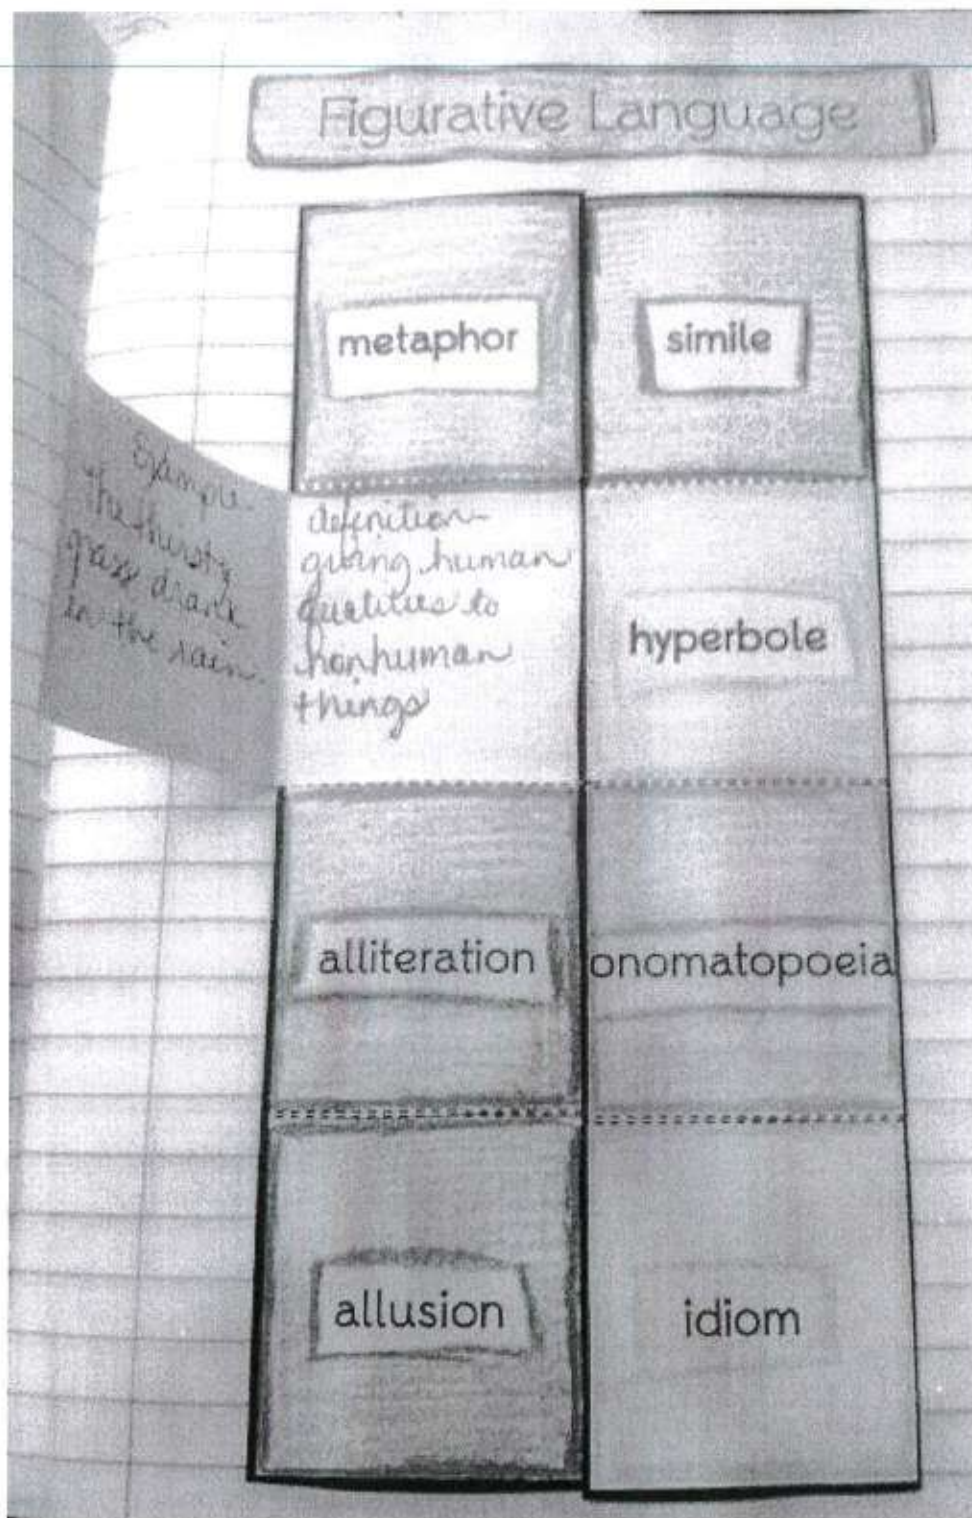 Figurative Language
metaphor
simile
Example-
the thirsty
grass drank
in the rain.
definition-
giving human
qualities to
nonhuman
things
hyperbole
alliteration
onomatopoeia
allusion
idiom